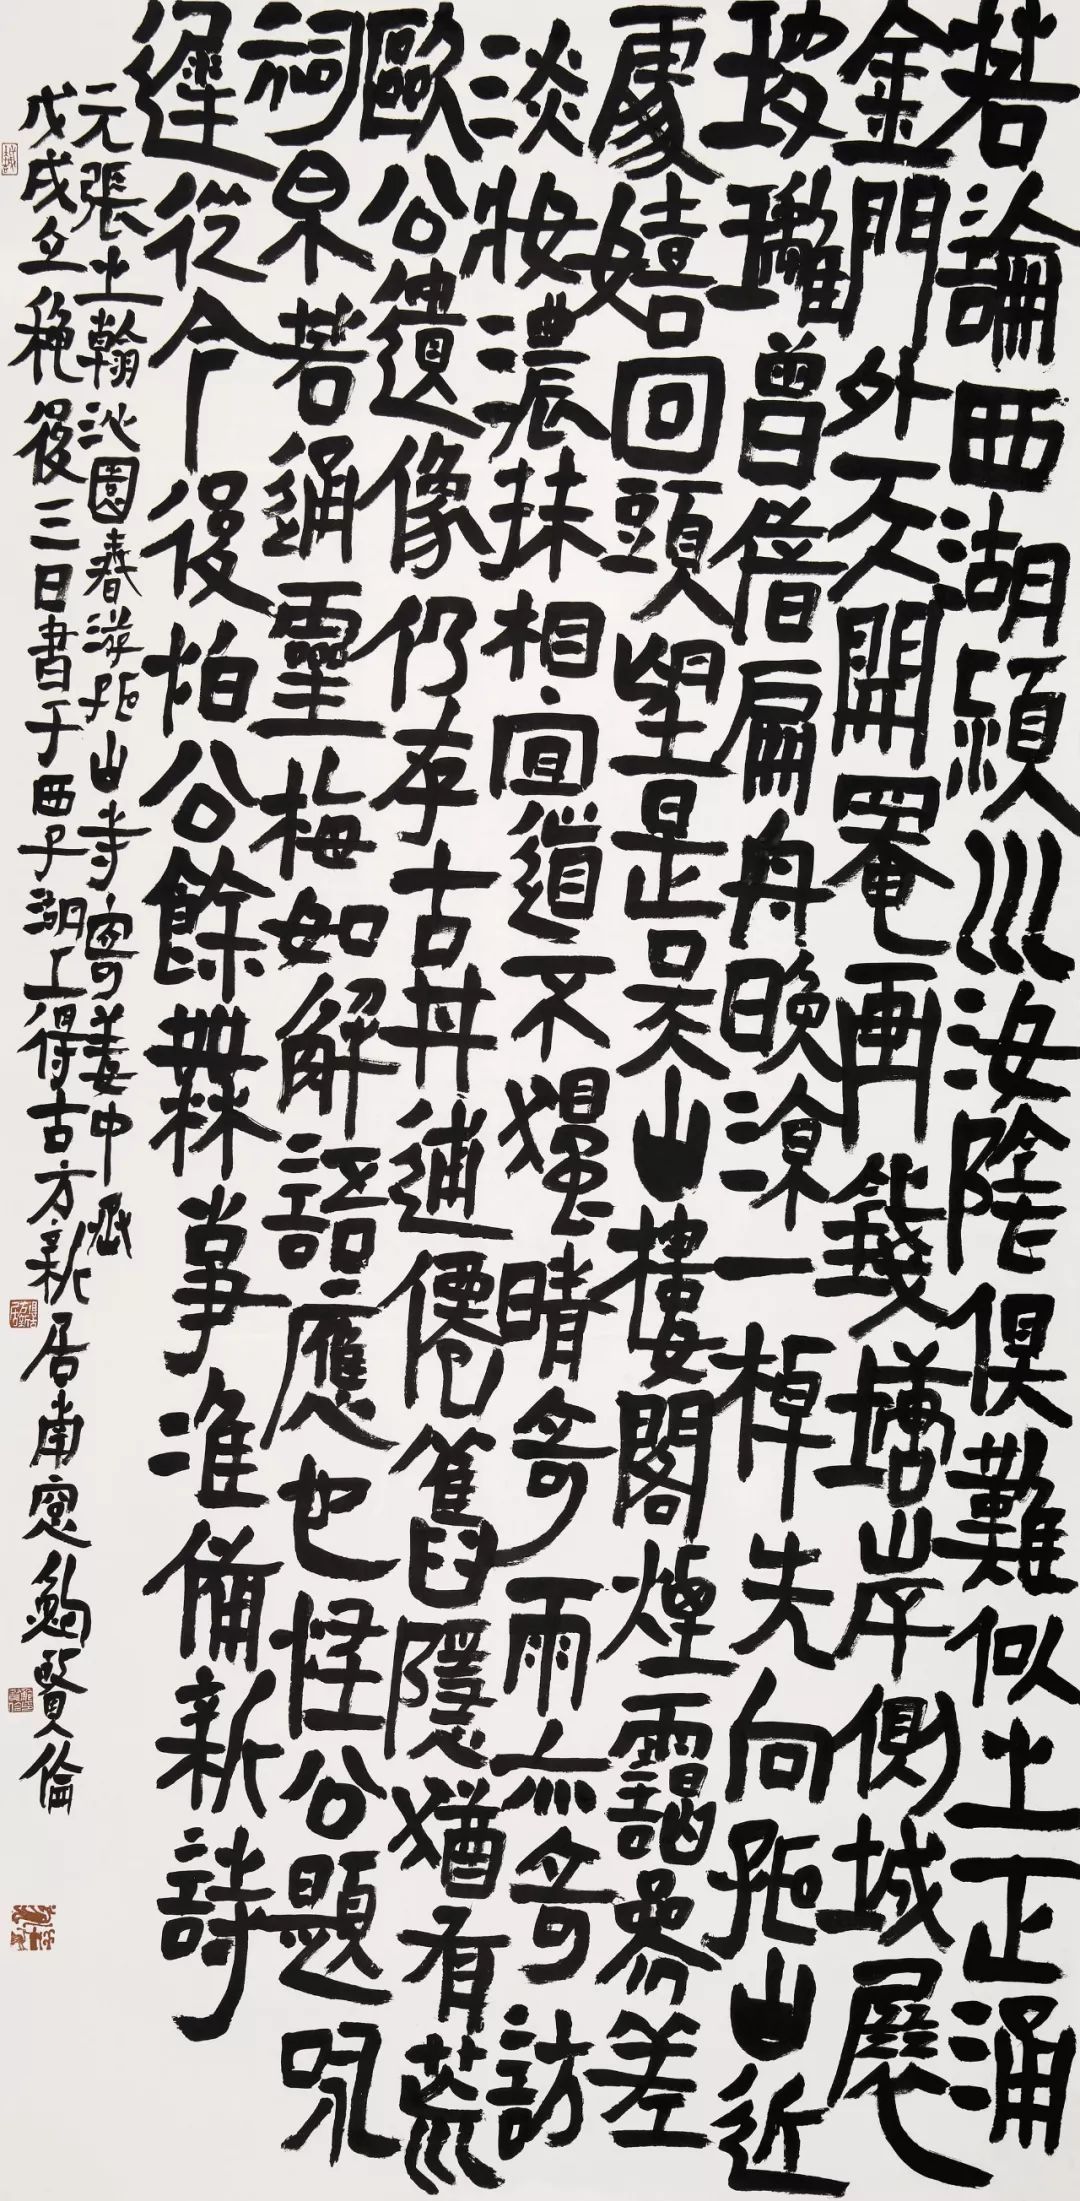 若論西湖潁川汝陰俱難似之正涌
金門外天開罨画錢塘岸側城展
玻瓈曾借扁舟晚涼一棹先向孤山近
處嬉回頭望是吴山樓閣煙靄參差
淡妝濃抹相宜道不獨晴奇雨亦奇訪
歐公遺像仍存古井逋僊舊隱猶有荒
祠果若通靈梅如解語應也怪公題咏
遲從今後怕公餘無事准備新詩
元張之翰沁園春游孤山寺寄姜中丞
戊戌立穐後三日書于西子湖上得古方新居南窗鮑賢倫